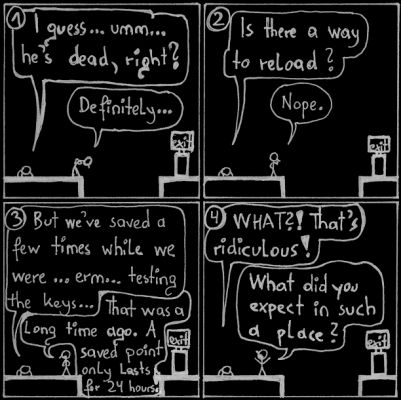 1
I guess... umm...
he's dead, right?
Definitely...
exit
2
Is there a way
to reload?
Nope.
exit
3
But we've saved a
few times while we
were ... erm... testing
the keys...
That was a
long time ago. A
saved point
only lasts
for 24 hours.
exit
4
WHAT?! That's
ridiculous!
What did you
expect in such
a place?
exit